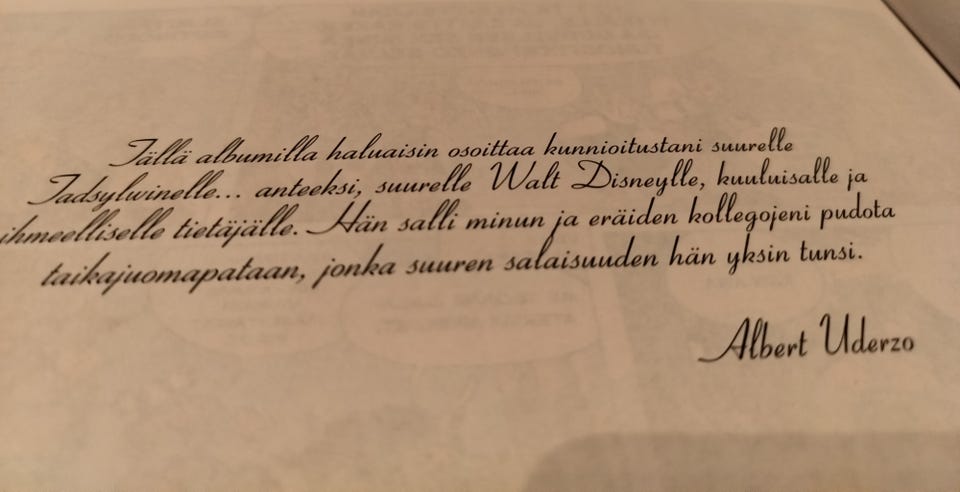 Tällä albumilla haluaisin osoittaa kunnioitustani suurelle
Tadsylwinelle... anteeksi, suurelle Walt Disneylle, kuuluisalle ja
ihmeelliselle tietäjälle. Hän salli minun ja eräiden kollegojeni pudota
taikajuomapataan, jonka suuren salaisuuden hän yksin tunsi.
Albert Uderzo